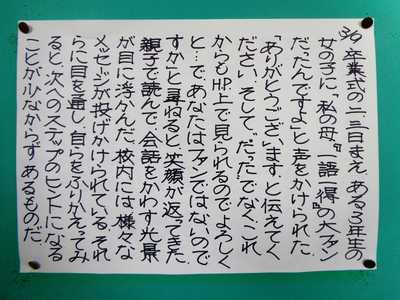 3/9 卒業式の一、二日まえ、ある3年生の
女の子に、「私の母、『一語一得』の大ファン
だったんですよ」と声をかけられた。
「ありがとうございます、と伝えてく
ださい。そして、"だった"でなく、これ
からもH.P.上で見られるのでよろしく
と…。で、あなたはファンではないので
すか」と尋ねると、笑顔が返ってきた。
親子で読んで、会話をかわす光景
が目に浮かんだ。校内には、様々な
メッセージが投げかけられている。それ
らに目を通し、自らをふりかえってみ
ると、次へのステップのヒントになる
ことが少なからずあるものだ。